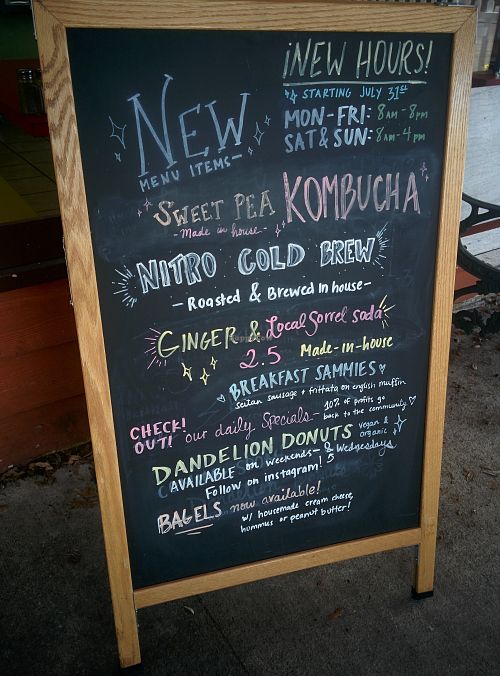 ¡NEW HOURS!
STARTING JULY 31st
MON-FRI: 8am-8pm
SAT & SUN: 8am-4pm
NEW
MENU ITEMS-
SWEET PEA KOMBUCHA
-Made in house-
NITRO COLD BREW
-Roasted & Brewed In house-
GINGER & Local Sorrel soda
2.5 Made-in-house
BREAKFAST SAMMIES
Seitan sausage + frittata on english muffin
CHECK! OUT! our daily Specials- 10% of profits go
back to the community
DANDELION DONUTS vegan & organic
AVAILABLE on weekends- & Wednesdays
Follow on instagram!
BAGELS now available!
w/ housemade cream cheese,
hummus or peanut butter!